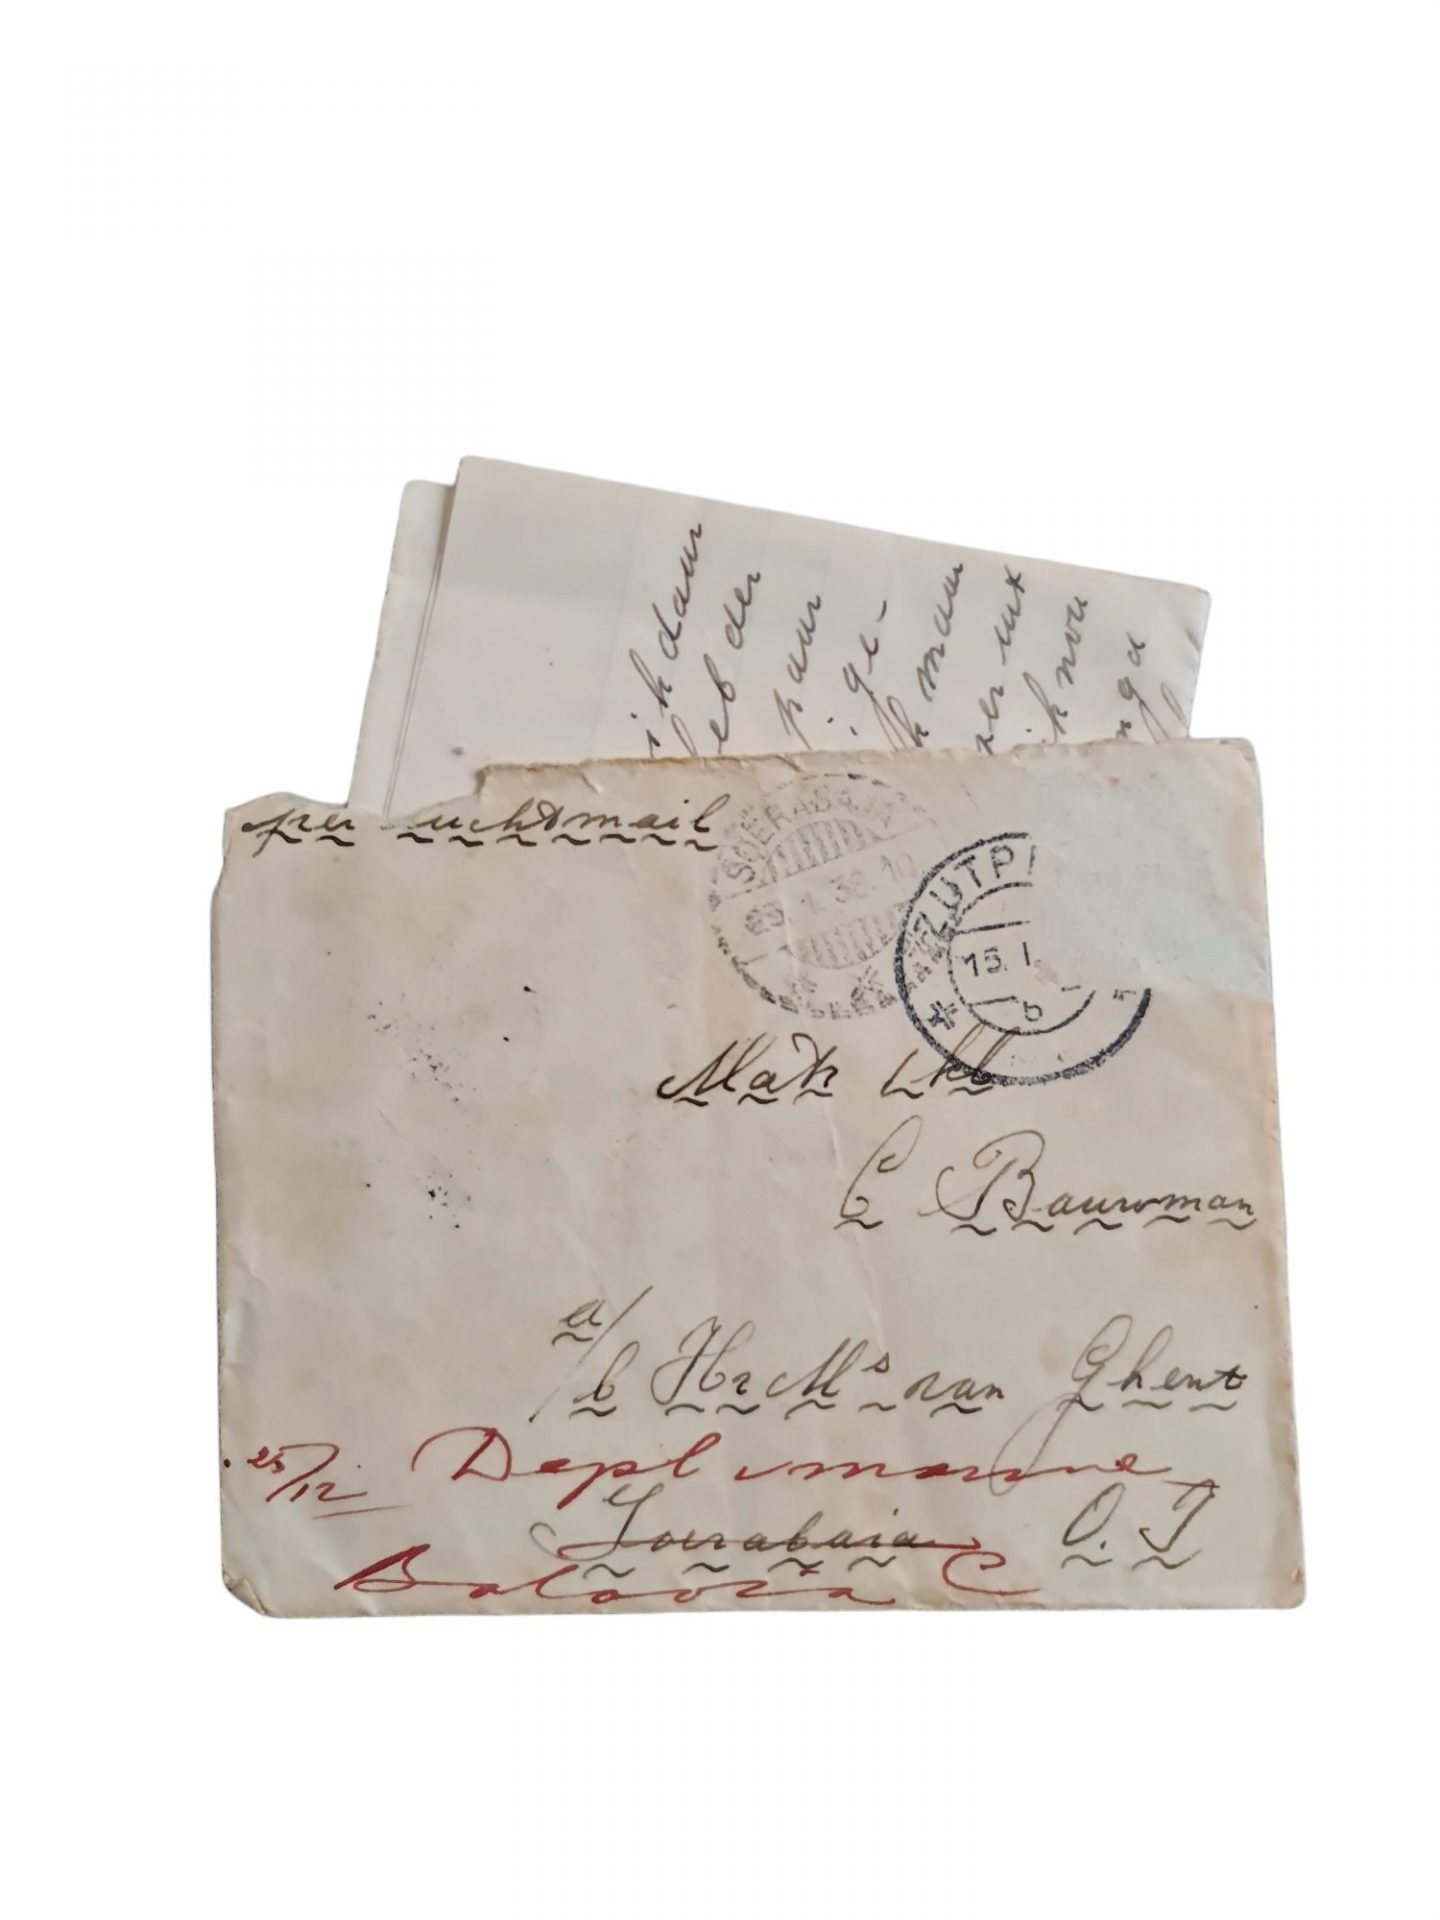 ik daar
eb der
paar
ge-
k maar
zer uit
ik nou
nga
per luchtmail
SOERABAJA
25. 1. 38. 10
ZUTP
15. I
b
Matr
C Bauwman
a/b Hr Ms van Ghent
25/12 Dept v marine
Soerabaia O. I
Batavia C